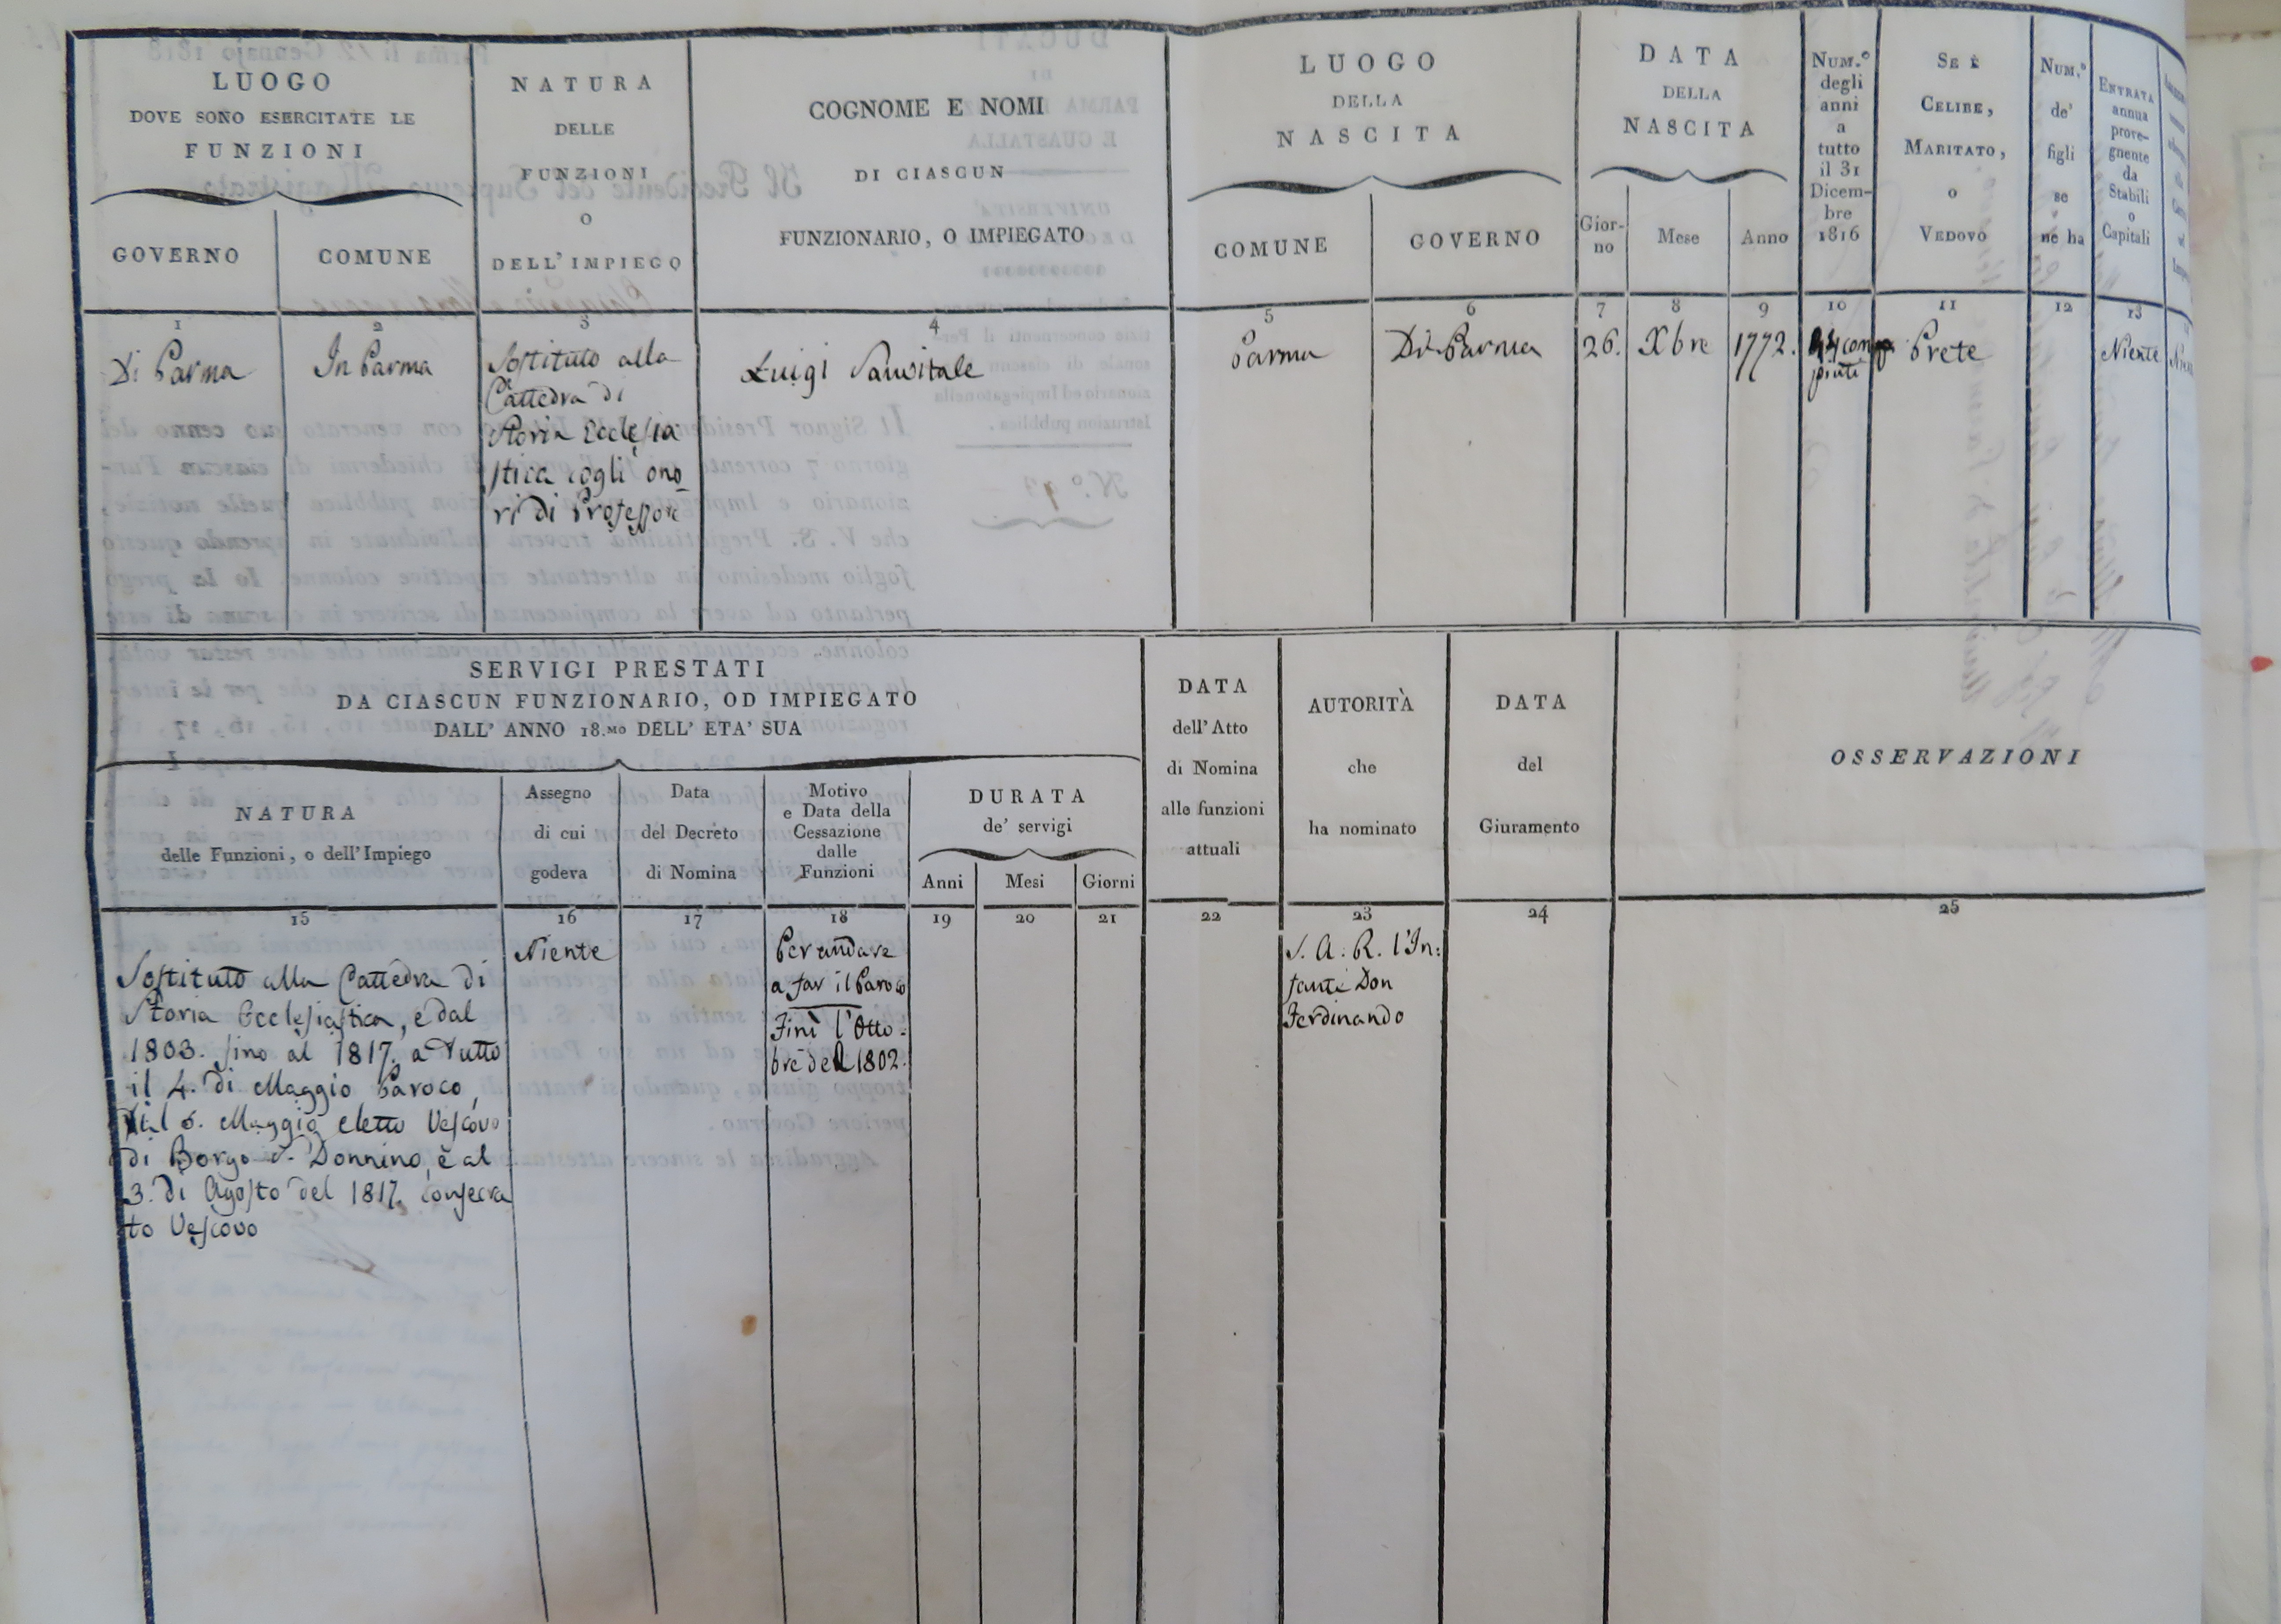 LUOGO
DOVE SONO ESERCITATE LE
FUNZIONI
GOVERNO
COMUNE
NATURA
DELLE
FUNZIONI
O
DELL' IMPIEGO
COGNOME E NOMI
DI CIASCUN
FUNZIONARIO, O IMPIEGATO
LUOGO
DELLA
NASCITA
COMUNE
GOVERNO
DATA
DELLA
NASCITA
Gior-
no
Mese
Anno
NUM.°
degli
anni
a
tutto
il 31
Dicem-
bre
1816
SE È
CELIBE,
MARITATO,
o
VEDOVO
NUM.°
de'
figli
se
ne ha
ENTRATA
annua
prove-
gnente
da
Stabili
o
Capitali
1
2
3
4
5
6
7
8
9
10
11
12
13
Di Parma
In Parma
Sostituto alla
Cattedra di
Storia Ecclesia
stica cogli ono
ri di Professore
Luigi Sanvitale
Parma
Di Parma
26.
Xbre
1772.
44 com
piuti
Prete
Niente
SERVIGI PRESTATI
DA CIASCUN FUNZIONARIO, OD IMPIEGATO
DALL' ANNO 18.MO DELL' ETA' SUA
NATURA
delle Funzioni, o dell'Impiego
Assegno
di cui
godeva
Data
del Decreto
di Nomina
Motivo
e Data della
Cessazione
dalle
Funzioni
DURATA
de' servigi
Anni
Mesi
Giorni
DATA
dell' Atto
di Nomina
alle funzioni
attuali
AUTORITÀ
che
ha nominato
DATA
del
Giuramento
OSSERVAZIONI
15
16
17
18
19
20
21
22
23
24
25
Sostituto alla Cattedra di
Storia Ecclesiastica, e dal
1803. sino al 1817. a tutto
il 4. di Maggio Paroco,
il 5. Maggio eletto Vescovo
di Borgo S. Donnino, e al
3. di Agosto del 1817. consecra
to Vescovo
Niente
Per andare
a far il Paroco
Finì l'Otto-
bre del 1802.
S. A. R. l'In:
fante Don
Ferdinando